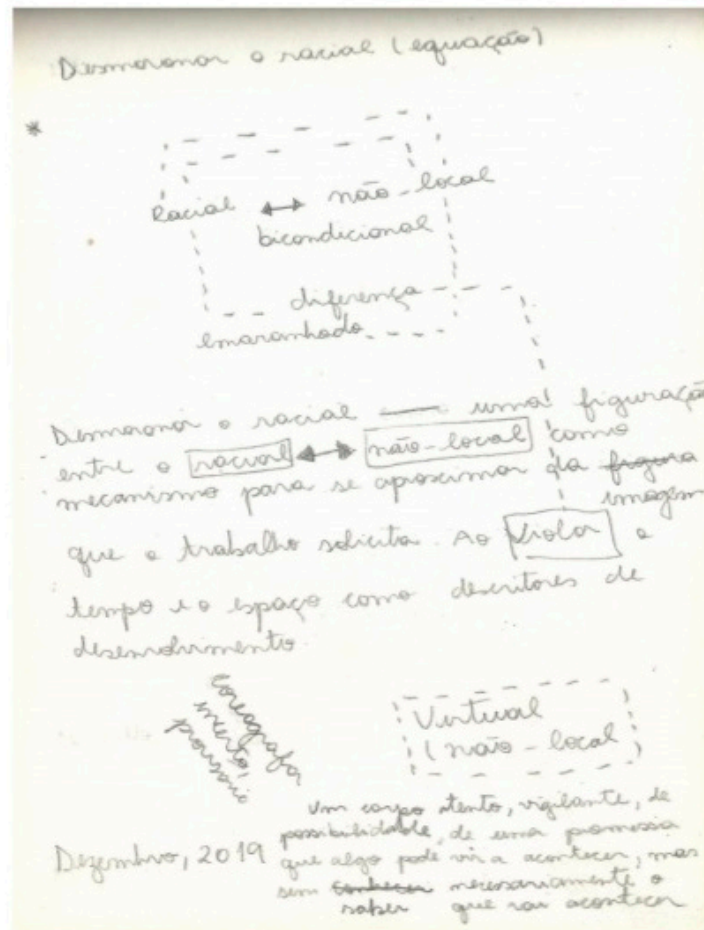 Desmoronar o racial (equação)
*
Racial ↔ não-local
bicondicional
diferença
emaranhado
Desmoronar o racial — uma figuração
entre o racial ↔ não-local como
mecanismo para se aproximar da figura
imagem
que o trabalho solicita. Ao Violar o
tempo e o espaço como descritores de
desenvolvimento.
Coreografia
incerto,
Virtual
(não-local)
Um corpo atento, vigilante, de
possibilidade, de uma promessa
Dezembro, 2019 que algo pode vir a acontecer, mas
sem conhecer necessariamente o
saber que vai acontecer